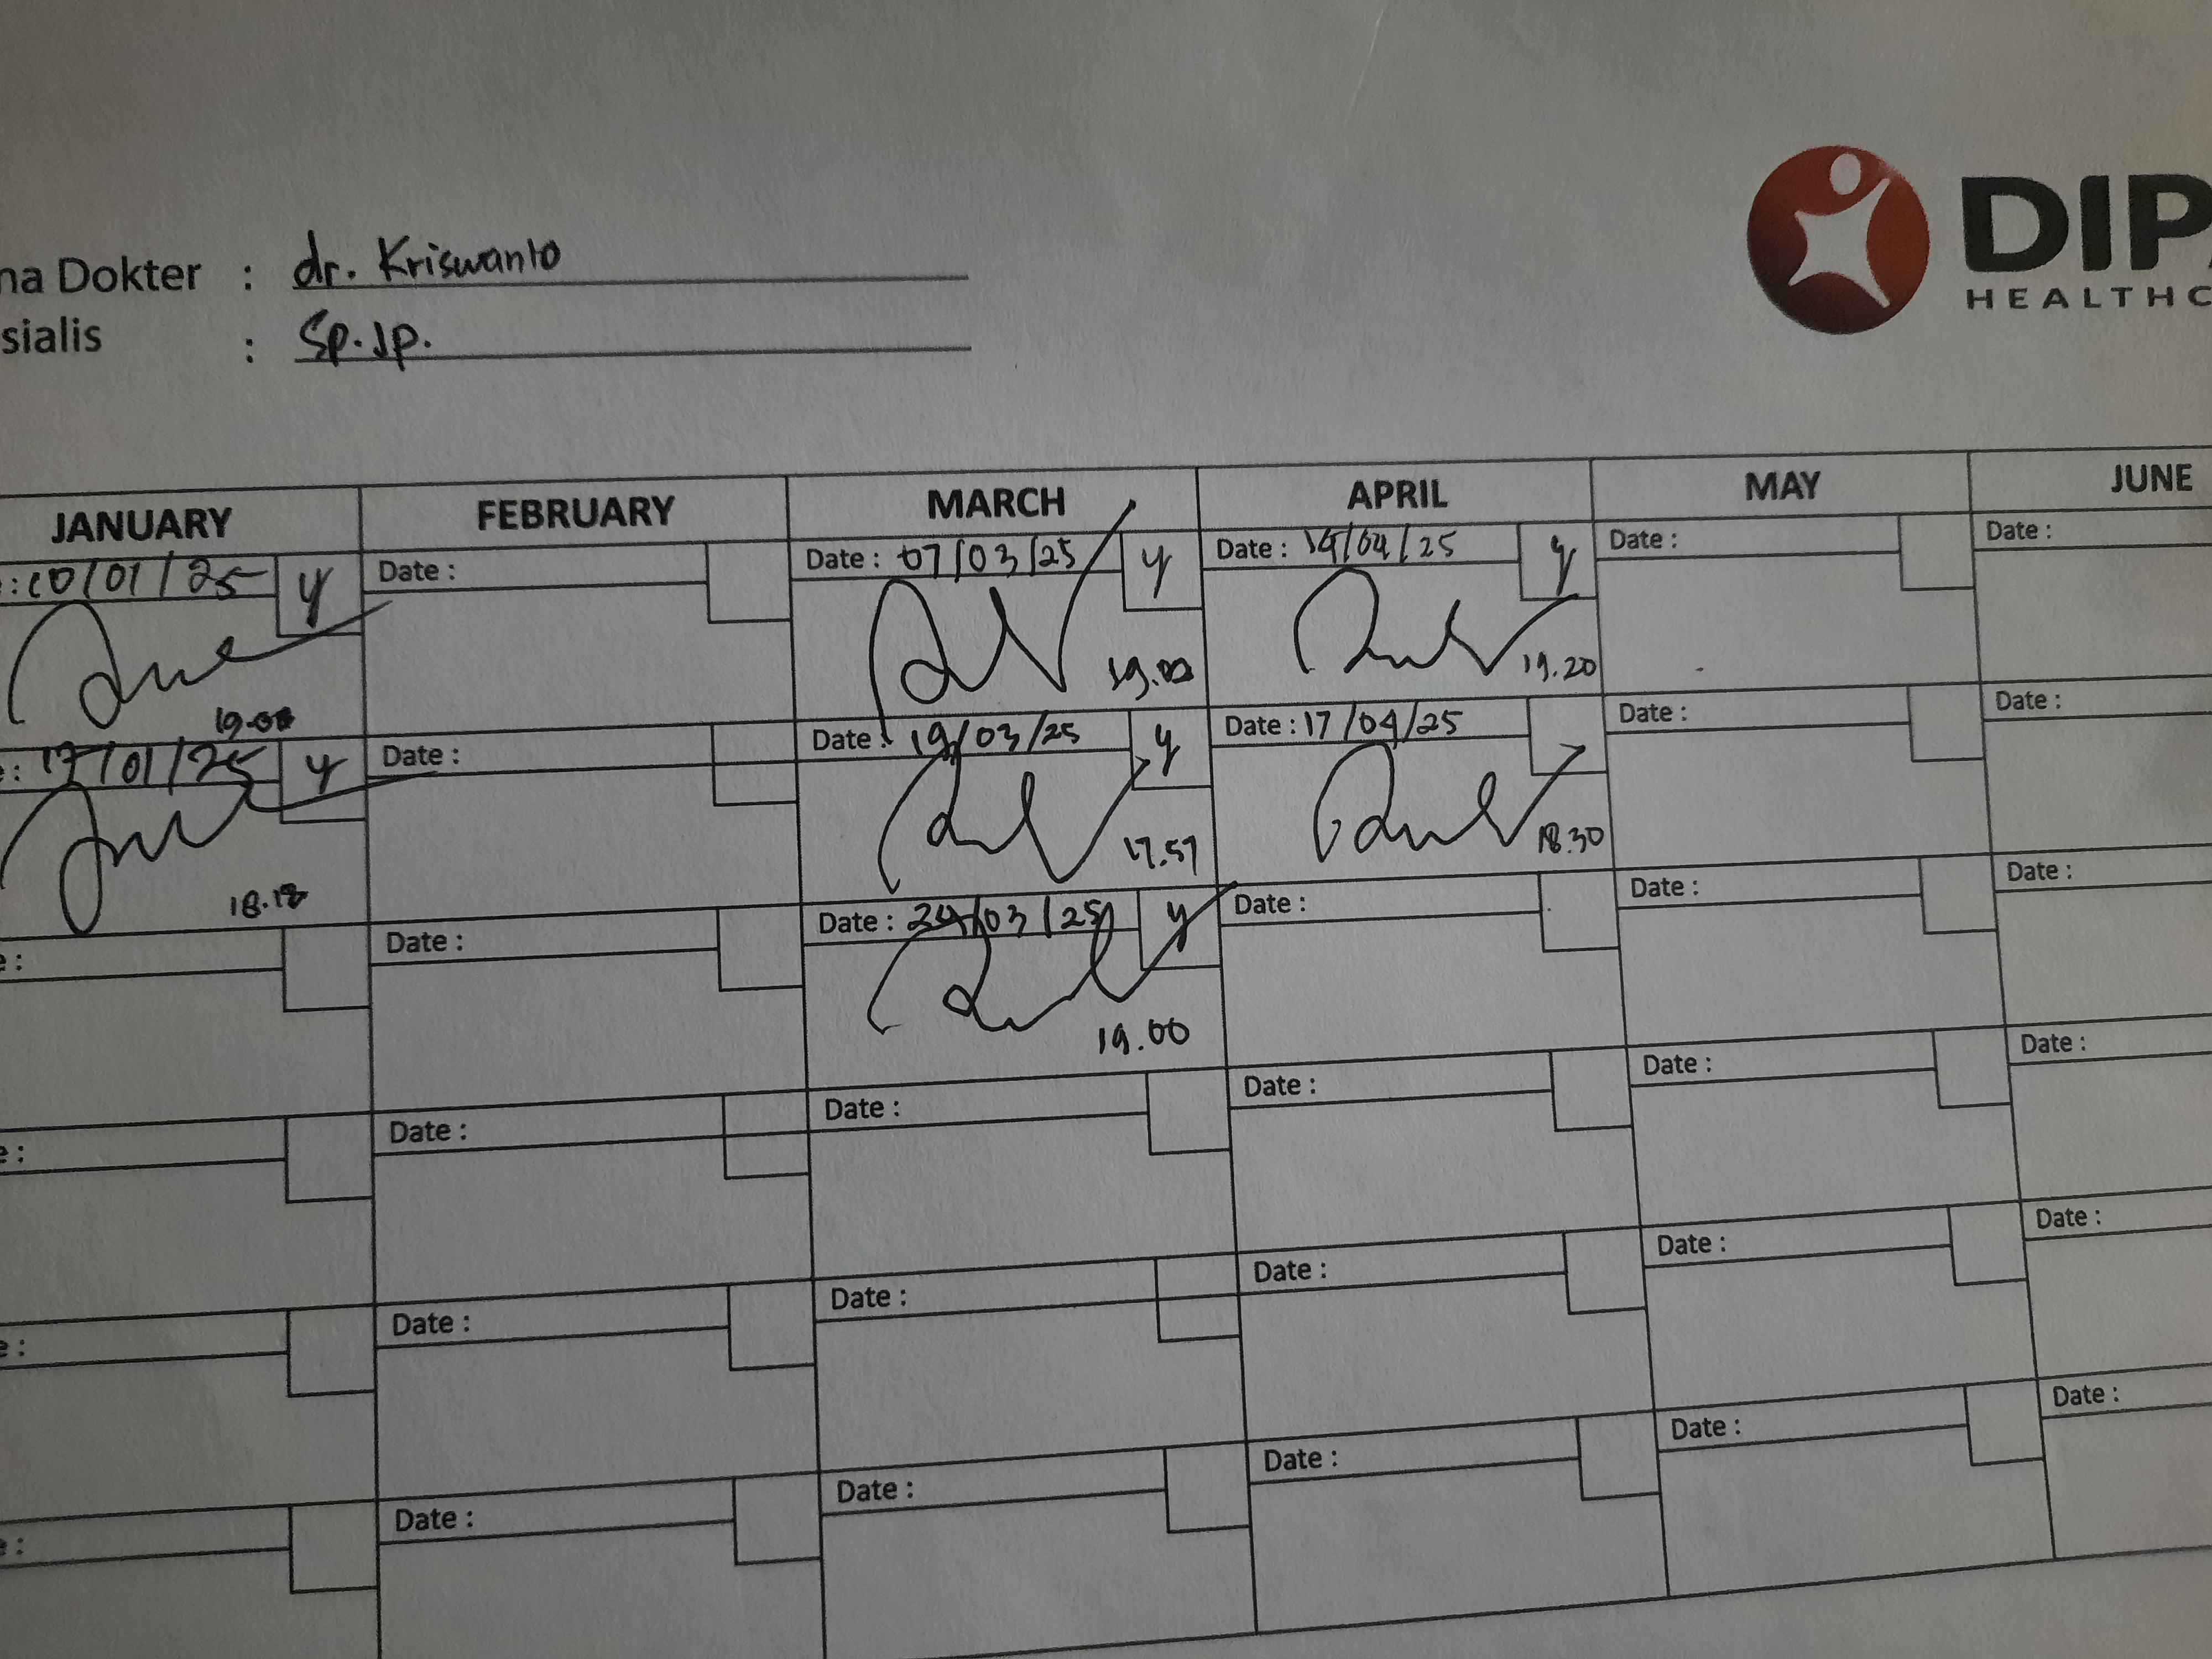 na Dokter : dr. Kriswanto
sialis : Sp.Jp.
DIPA
HEALTHC
JANUARY FEBRUARY MARCH APRIL MAY JUNE
e: 10/01/25 y Date : Date : 07/03/25 y Date : 14/04/25 y Date : Date :
19.00 19.00 19.20
e: 17/01/25 y Date : Date : 19/03/25 y Date : 17/04/25 Date : Date :
18.18 17.57 18.30
e: Date : Date : 24/03/25 y Date : Date : Date :
19.00
e: Date : Date : Date : Date : Date :
e: Date : Date : Date : Date : Date :
e: Date : Date : Date : Date : Date :